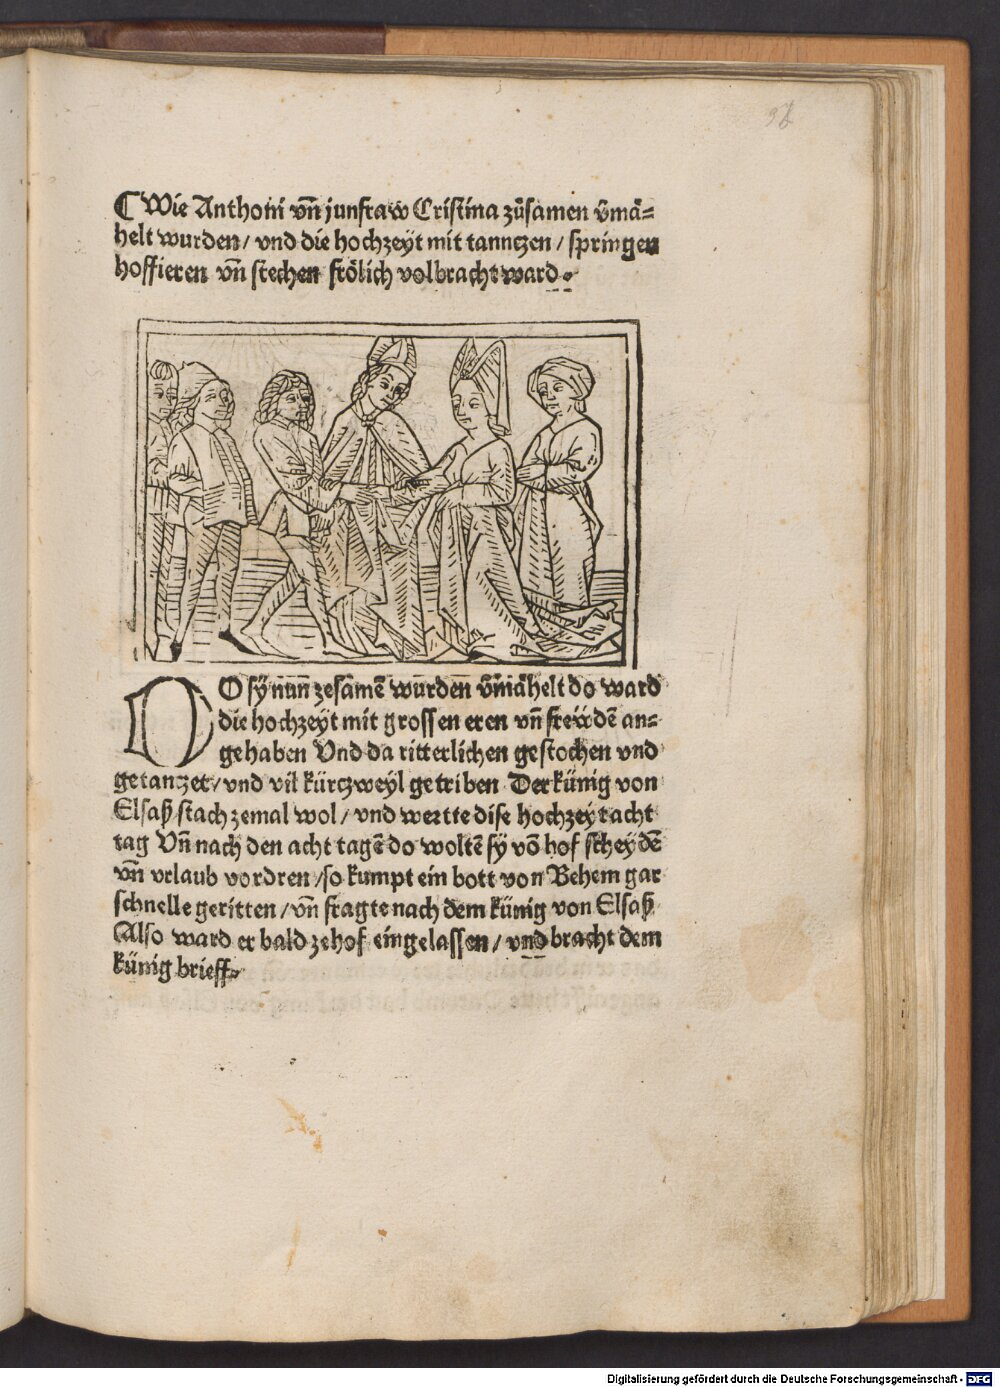 ¶ Wie Anthoni vn̄ junfraw Cristina zůsamen v̄mä=
helt wurden / vnd die hochzeyt mit tanntzen / springen
hoffieren vn̄ stechen frölich volbracht ward.
DO sÿ nun̄ zesamē wurden̄ v̄mähelt do ward
die hochzeÿt mit grossen eren vn̄ frewdē an=
gehaben Vnd da ritterlichen gestochen vnd
getanczet / vnd vil kürczweÿl getriben Der künig von
Elsaß stach zemal wol / vnd wertte dise hochzeÿt acht
tag Vn̄ nach den acht tagē do woltē sÿ vō hof scheÿdē
vn̄ vrlaub vordren / so kumpt ein bott von Behem gar
schnelle geritten / vn̄ fragte nach dem künig von Elsaß
Also ward er bald zehof eingelassen / vnd bracht dem
künig brieff.
Digitalisierung gefördert durch die Deutsche Forschungsgemeinschaft - DFG